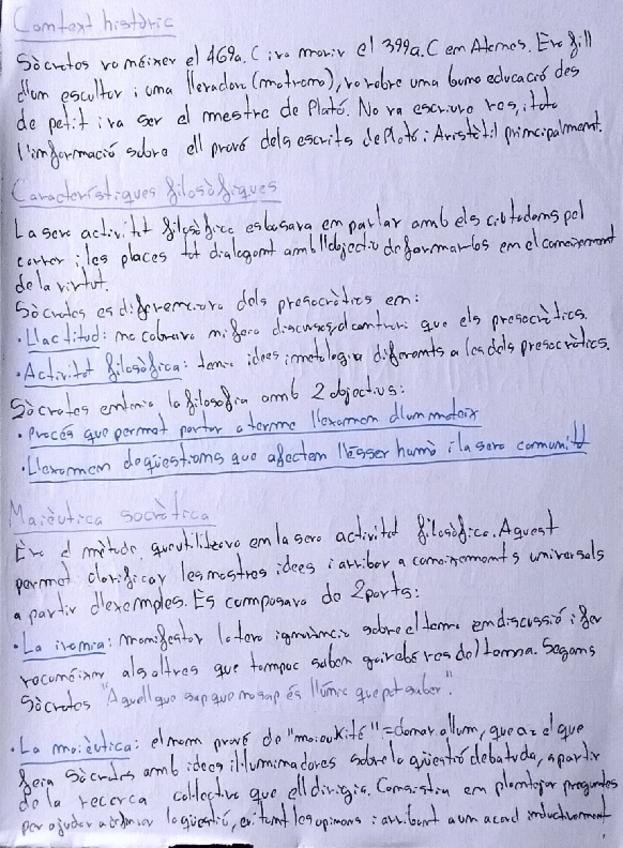 Context històric
Sòcrates va néixer el 469a.C i va morir el 399a.C en Atenes. Era fill
d'un escultor i una llevadora (matrona), va rebre una bona educació des
de petit i va ser el mestre de Plató. No va escriure res, i tota
l'informació sobre ell prové dels escrits de Plató i Aristòtil principalment.
Característiques filosòfiques
La seva activitat filosòfica es basava en parlar amb els ciutadans pel
carrer i les places tot dialogant amb l'objectiu de formar-los en el coneixement
de la virtut.
Sòcrates es diferenciava dels presocràtics en:
·L'actitud: no cobrava ni feia discursos, al contrari que els presocràtics.
·Activitat filosòfica: tenia idees i metologia diferents a les dels presocràtics.
Sòcrates entenia la filosofia amb 2 objectius:
·Procés que permet portar a terme l'examen d'un mateix
·L'examen de qüestions que afecten l'ésser humà i la seva comunitat
Maièutica socràtica
Era el mètode que utilitzava en la seva activitat filosòfica. Aquest
permet clarificar les nostres idees i arribar a coneixements universals
a partir d'exemples. Es composava de 2 parts:
·La ironia: manifestar la teva ignorància sobre el tema en discussió i fer
reconèixer als altres que tampoc saben gairebé res del tema. Segons
Sòcrates "Aquell que sap que no sap és l'únic que pot saber".
·La maièutica: el nom prové de "maioukité" = donar a llum, que és el que
feia Sòcrates amb idees il·luminadores sobre la qüestió debatuda, a partir
de la recerca col·lectiva que ell dirigia. Consistia em plantejar preguntes
per ajudar a la qüestió, evitant les opinions i arribant a un acord inductivament